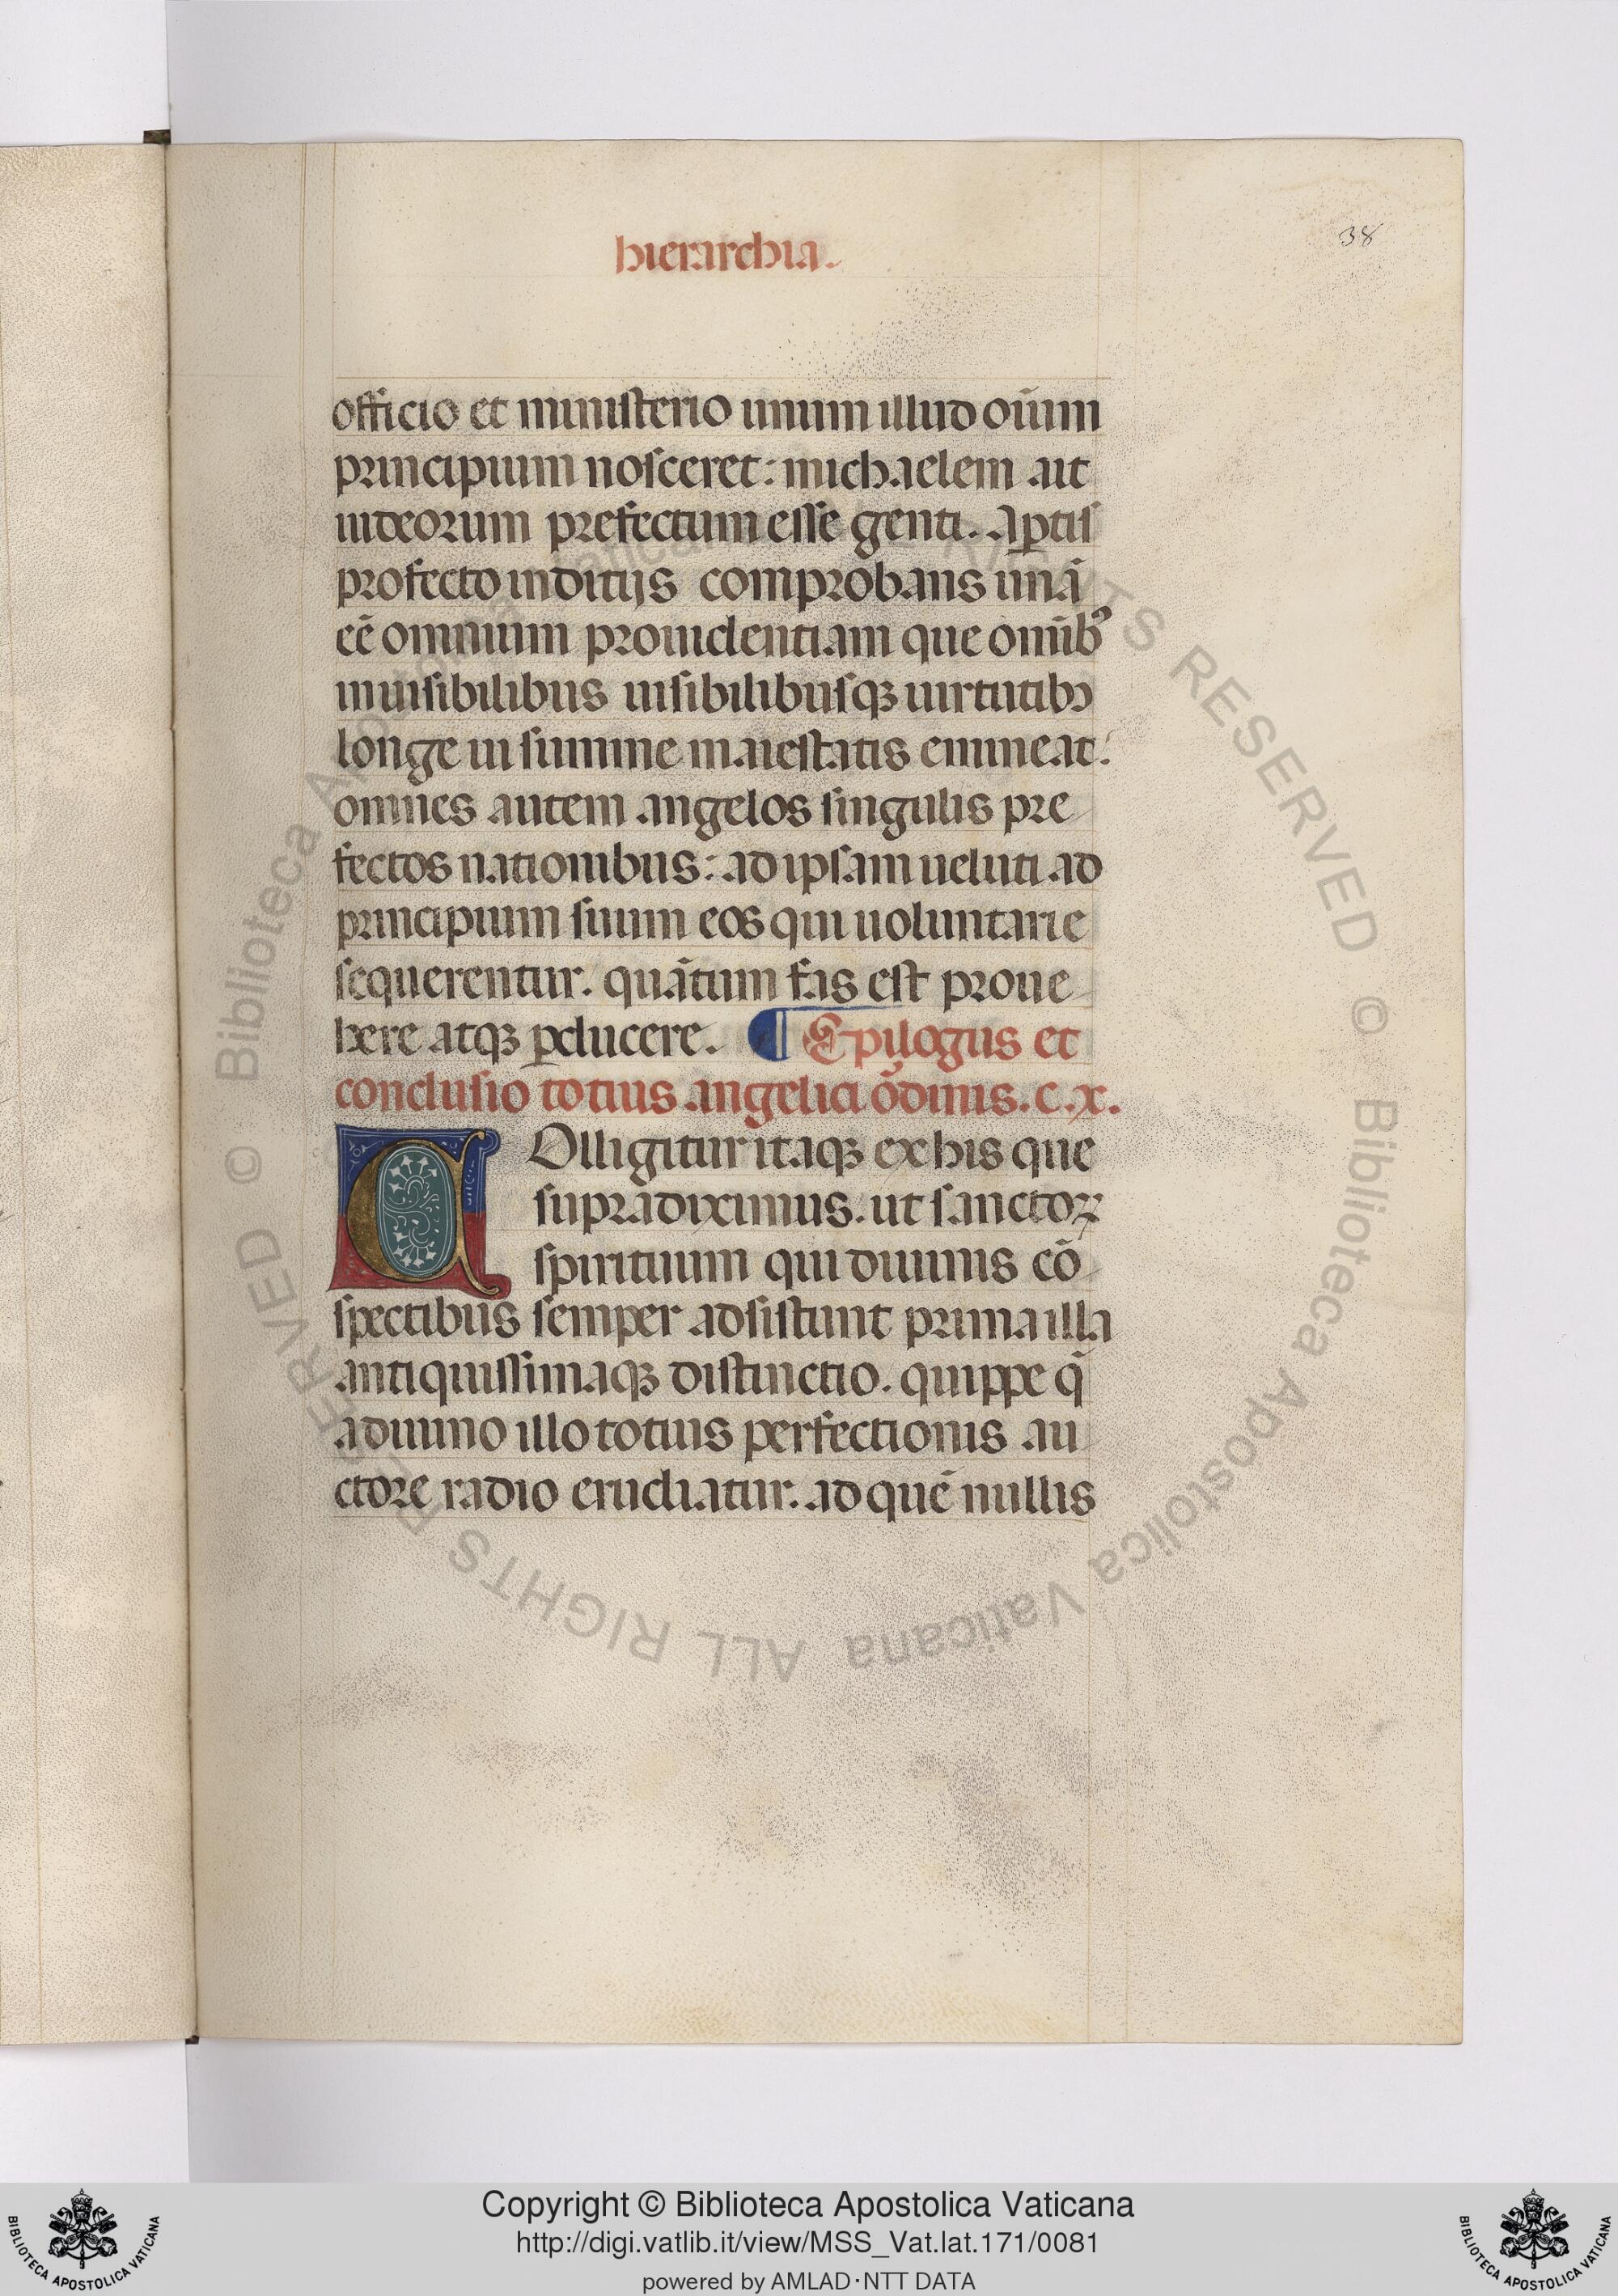 hierarchia.
38
officio et ministerio unum illud oīum
principium nosceret: michaelem ait
iudeorum prefectum esse genti. Aꝑtis
profecto inditijs comprobans unā
eē omnium prouidentiam que omībꝰ
inuisibilibus uisibilibusqꝫ uirtutibꝫ
longe ui summe maiestatis emineat:
omnes autem angelos singulis pre
fectos nationibus: ad ipsam ueluti ad
principium suum eos qui uoluntarie
sequerentur. quātum fas est proue
here atqꝫ ꝑducere. ¶ Epilogus et
conclusio totius angelici ōdinis. c. x.
COlligitur itaqꝫ ex his que
supradiximus. ut sanctoꝝ
spirituum qui diuinis cō
spectibus semper adsistunt prima illa
antiquissimaqꝫ distinctio. quippe q̄
a diuino illo totius perfectionis au
ctore radio erudiatur. ad quē nullis
© Biblioteca Apostolica Vaticana ALL RIGHTS RESERVED
© Biblioteca Apostolica Vaticana ALL RIGHTS RESERVED
Copyright © Biblioteca Apostolica Vaticana
http://digi.vatlib.it/view/MSS_Vat.lat.171/0081
powered by AMLAD·NTT DATA
BIBLIOTECA APOSTOLICA VATICANA
BIBLIOTECA APOSTOLICA VATICANA